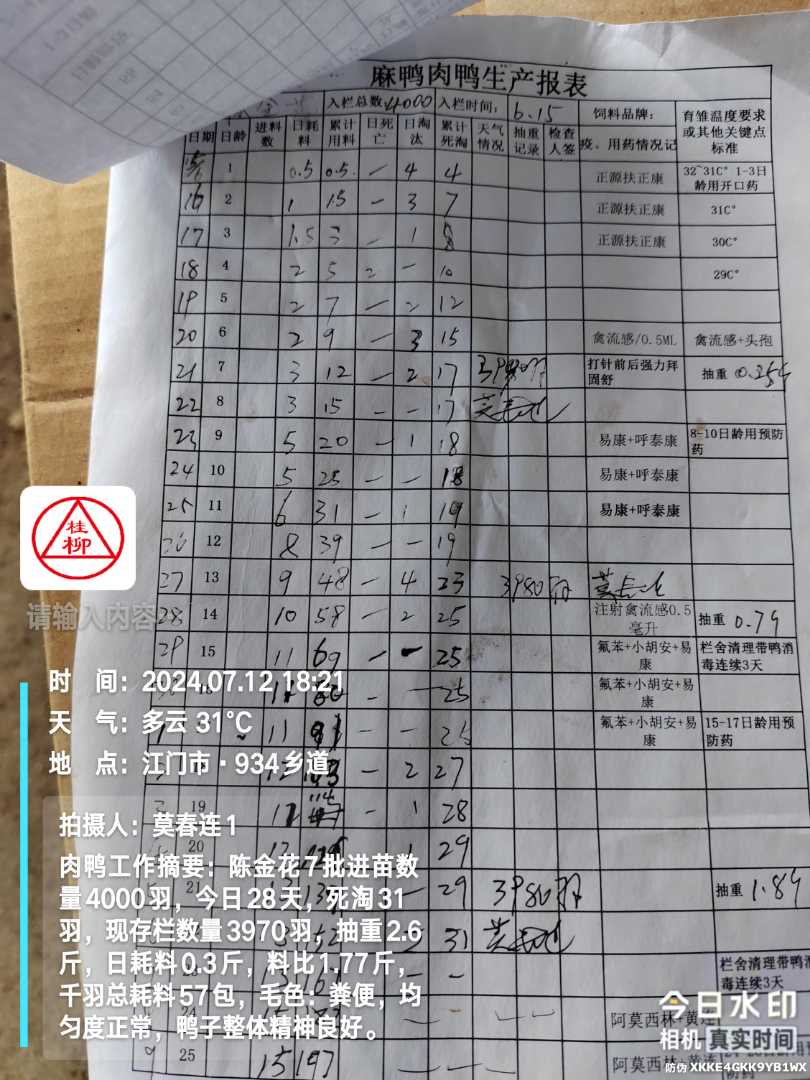 麻鸭肉鸭生产报表
入栏总数 4000 入栏时间: 6.15 饲料品牌: 育雏温度要求或其他关键点标准
日期 日龄 进料数 日耗料 累计用料 日死亡 日淘汰 累计死淘 天气情况 抽重记录 检查人签 疫、用药情况记
1 0.5 0.5 — 4 4 正源扶正康 32~31C° 1-3日龄用开口药
16 2 1 1.5 — 3 7 正源扶正康 31C°
17 3 1.5 3 — 1 8 正源扶正康 30C°
18 4 2 5 2 — 10 29C°
19 5 2 7 — 2 12
20 6 2 9 — 3 15 禽流感/0.5ML 禽流感+头孢
21 7 3 12 — 2 17 3980羽 打针前后强力拜固舒 抽重
22 8 3 15 — — 17 莫春连
23 9 5 20 — 1 18 易康+呼泰康 8-10日龄用预防药
24 10 5 25 — — 18 易康+呼泰康
25 11 6 31 — 1 19 易康+呼泰康
26 12 8 39 — — 19
27 13 9 48 — 4 23 3980羽 莫春连
28 14 10 58 — 2 25 注射禽流感0.5毫升 抽重 0.79
29 15 11 69 — — 25 氟苯+小胡安+易康 栏舍清理带鸭消毒连续3天
11 80 — — 25 氟苯+小胡安+易康
11 91 — — 25 氟苯+小胡安+易康 15-17日龄用预防药
— 2 27
19 — 1 28
20 1 29
21 — 29 3980羽 抽重 1.89
31 莫春连
— — 栏舍清理带鸭消毒连续3天
24 — — 阿莫西林+黄连
25 15 197 — — 阿莫西林+黄连
桂柳
请输入内容
时 间: 2024.07.12 18:21
天 气: 多云 31℃
地 点: 江门市·934乡道
拍摄人: 莫春连1
肉鸭工作摘要: 陈金花7批进苗数
量4000羽, 今日28天, 死淘31
羽, 现存栏数量3970羽, 抽重2.6
斤, 日耗料0.3斤, 料比1.77斤,
千羽总耗料57包, 毛色: 粪便, 均
匀度正常, 鸭子整体精神良好。
今日水印
相机 真实时间
防伪 XKKE4GKK9YB1WX